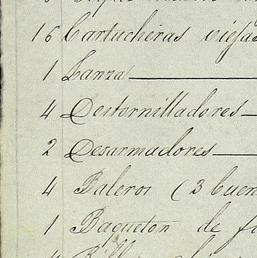 16 Cartucheras viejas
1 Lanza
4 Destornilladores
2 Desarmadores
4 Baleros (3 buen
1 Baqueton de